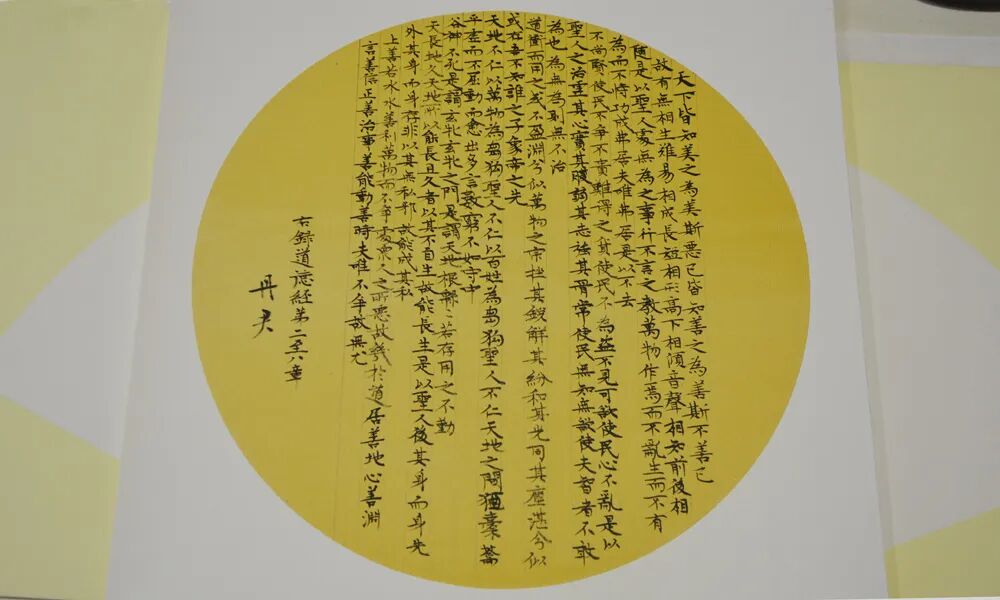 天下皆知美之為美斯惡已皆知善之為善斯不善已
故有無相生難易相成長短相形高下相傾音聲相和前後相
隨是以聖人處無為之事行不言之教萬物作焉而不亂生而不有
為而不恃功成弗居夫唯弗居是以不去
不尚賢使民不爭不貴難得之貨使民不為盗不見可欲使民心不亂是以
聖人之治虛其心實其腹弱其志強其骨常使民無知無欲使夫智者不敢
為也為無為則無不治
道衝而用之或不盈淵兮似萬物之宗挫其銳解其紛和其光同其塵湛兮似
或存吾不知誰之子象帝之先
天地不仁以萬物為芻狗聖人不仁以百姓為芻狗聖人不仁天地之間猶橐籥
乎虛而不屈動而愈出多言數窮不如守中
谷神不死是謂玄牝玄牝之門是謂天地根緜緜若存用之不勤
天長地久天地所以能長且久者以其不自生故能長生是以聖人後其身而身先
外其身而身存非以其無私邪故能成其私
上善若水水善利萬物而不爭處衆人之所惡故幾於道居善地心善淵
言善信正善治事善能動善時夫唯不爭故無尤
右録道德經第二至八章
丹